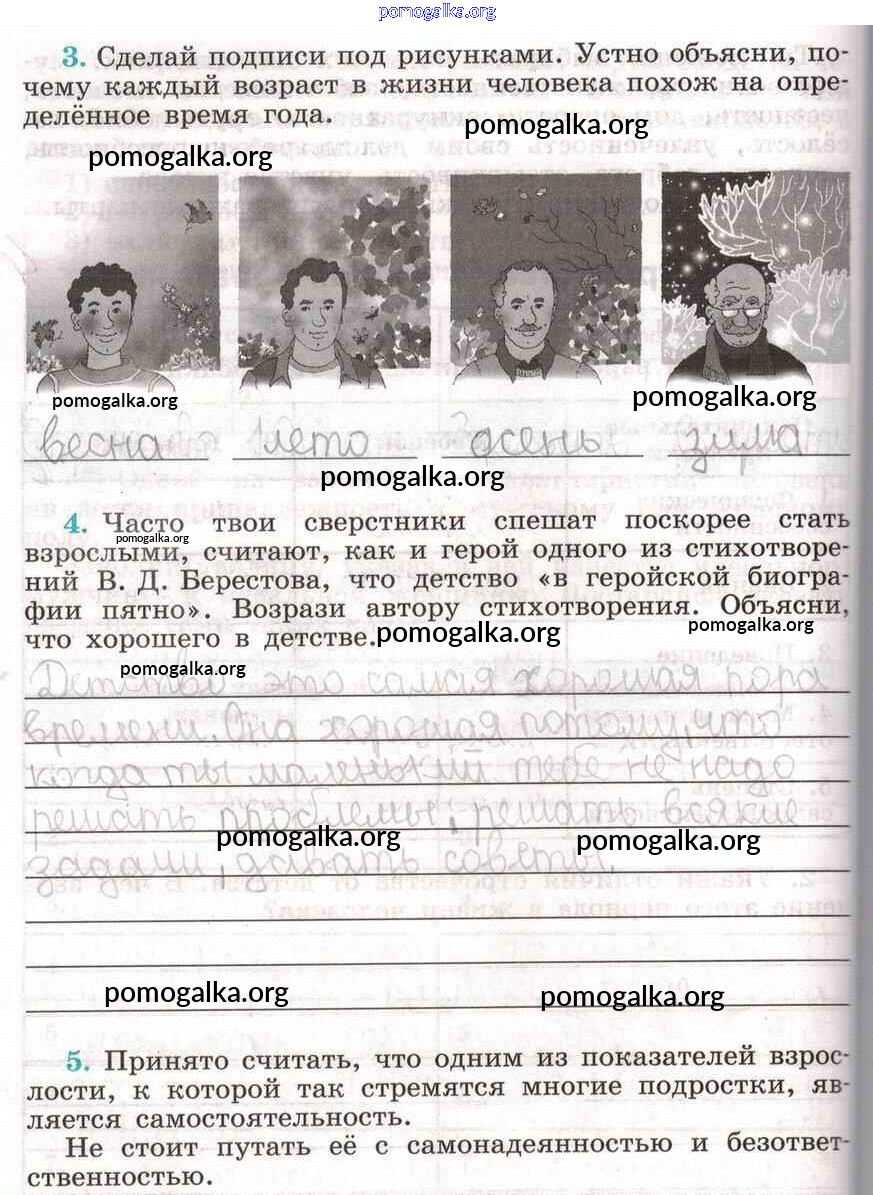 pomogalka.org
3. Сделай подписи под рисунками. Устно объясни, по-
чему каждый возраст в жизни человека похож на опре-
делённое время года.
pomogalka.org
pomogalka.org
pomogalka.org
pomogalka.org
весна лето осень зима
pomogalka.org
4. Часто твои сверстники спешат поскорее стать
pomogalka.org
взрослыми, считают, как и герой одного из стихотворе-
ний В. Д. Берестова, что детство «в геройской биогра-
фии пятно». Возрази автору стихотворения. Объясни,
что хорошего в детстве.
pomogalka.org
pomogalka.org
pomogalka.org
Детство это самая хорошая пора
времени. Она хорошая потому, что
когда ты маленький тебе не надо
решать проблемы, решать всякие
pomogalka.org
pomogalka.org
задачи, давать советы.
pomogalka.org
pomogalka.org
5. Принято считать, что одним из показателей взрос-
лости, к которой так стремятся многие подростки, яв-
ляется самостоятельность.
Не стоит путать её с самонадеянностью и безответ-
ственностью.